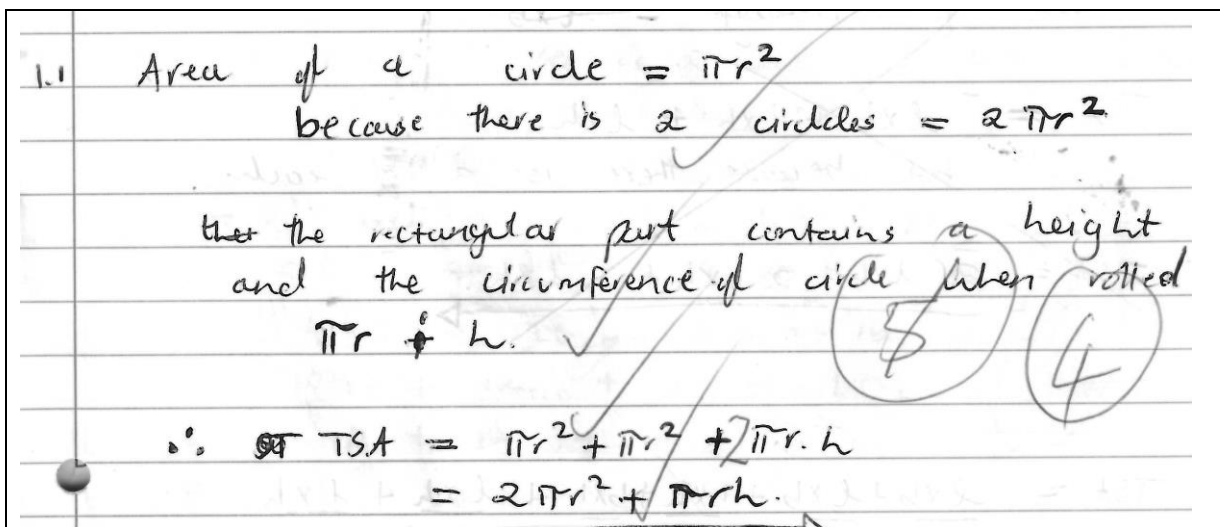 1.1 Area of a circle = πr²
because there is 2 circldes = 2πr²
the rectangular part contains a height
and the circumference of circle when rolled
πr h.
5 4
∴ TSA = πr² + πr² + 2πr.h
= 2πr² + πrh.